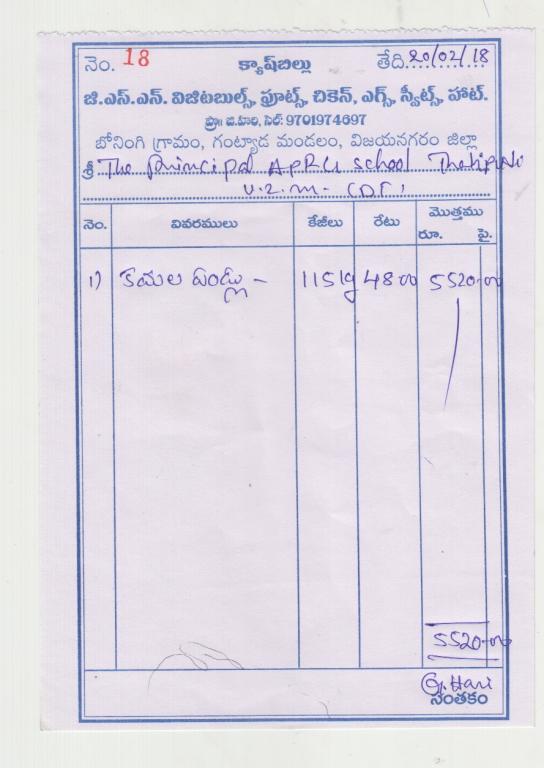 నెం. 18 క్యాష్‌బిల్లు తేది 20/02/18
జి.ఎస్.ఎన్. విజిటబుల్స్, ఫ్రూట్స్, చికెన్, ఎగ్స్, స్వీట్స్, హాట్.
ప్రొః జి.హరి, సెల్: 9701974697
బోనింగి గ్రామం, గంట్యాడ మండలం, విజయనగరం జిల్లా
శ్రీ The Principal A.P.R. School
V.Z.M.
నెం. వివరములు కేజీలు రేటు మొత్తము
రూ. పై.
1) కమల పండ్లు - 115 kg 48-00 5520-00
5520-00
G. Hari
సంతకం